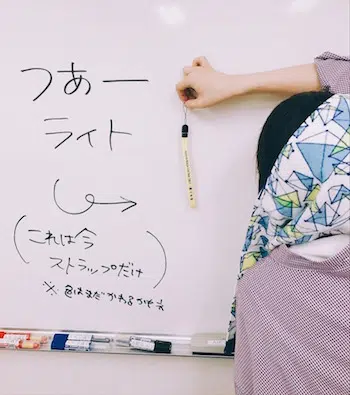 つあー
ライト
(これは今
ストラップだけ)
※色はまだかわるかも